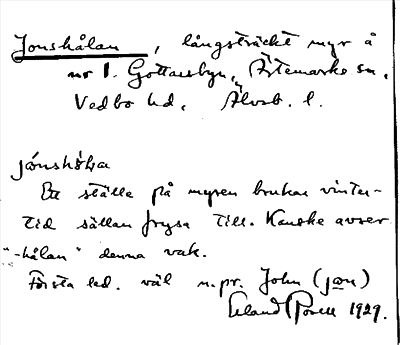 Jonshålan, långsträckt myr å
nr 1. Gottarsbyn, Ärtemarks sn.
Vedbo hd. Älvsb. l.
jónshòḷa
Ett ställe på myren brukar vinter-
tid sällan frysa till. Kanske avser
"-hålan" denna vak.
Första led. väl n.pr. John (jɷn)
Erland Rosell 1929.